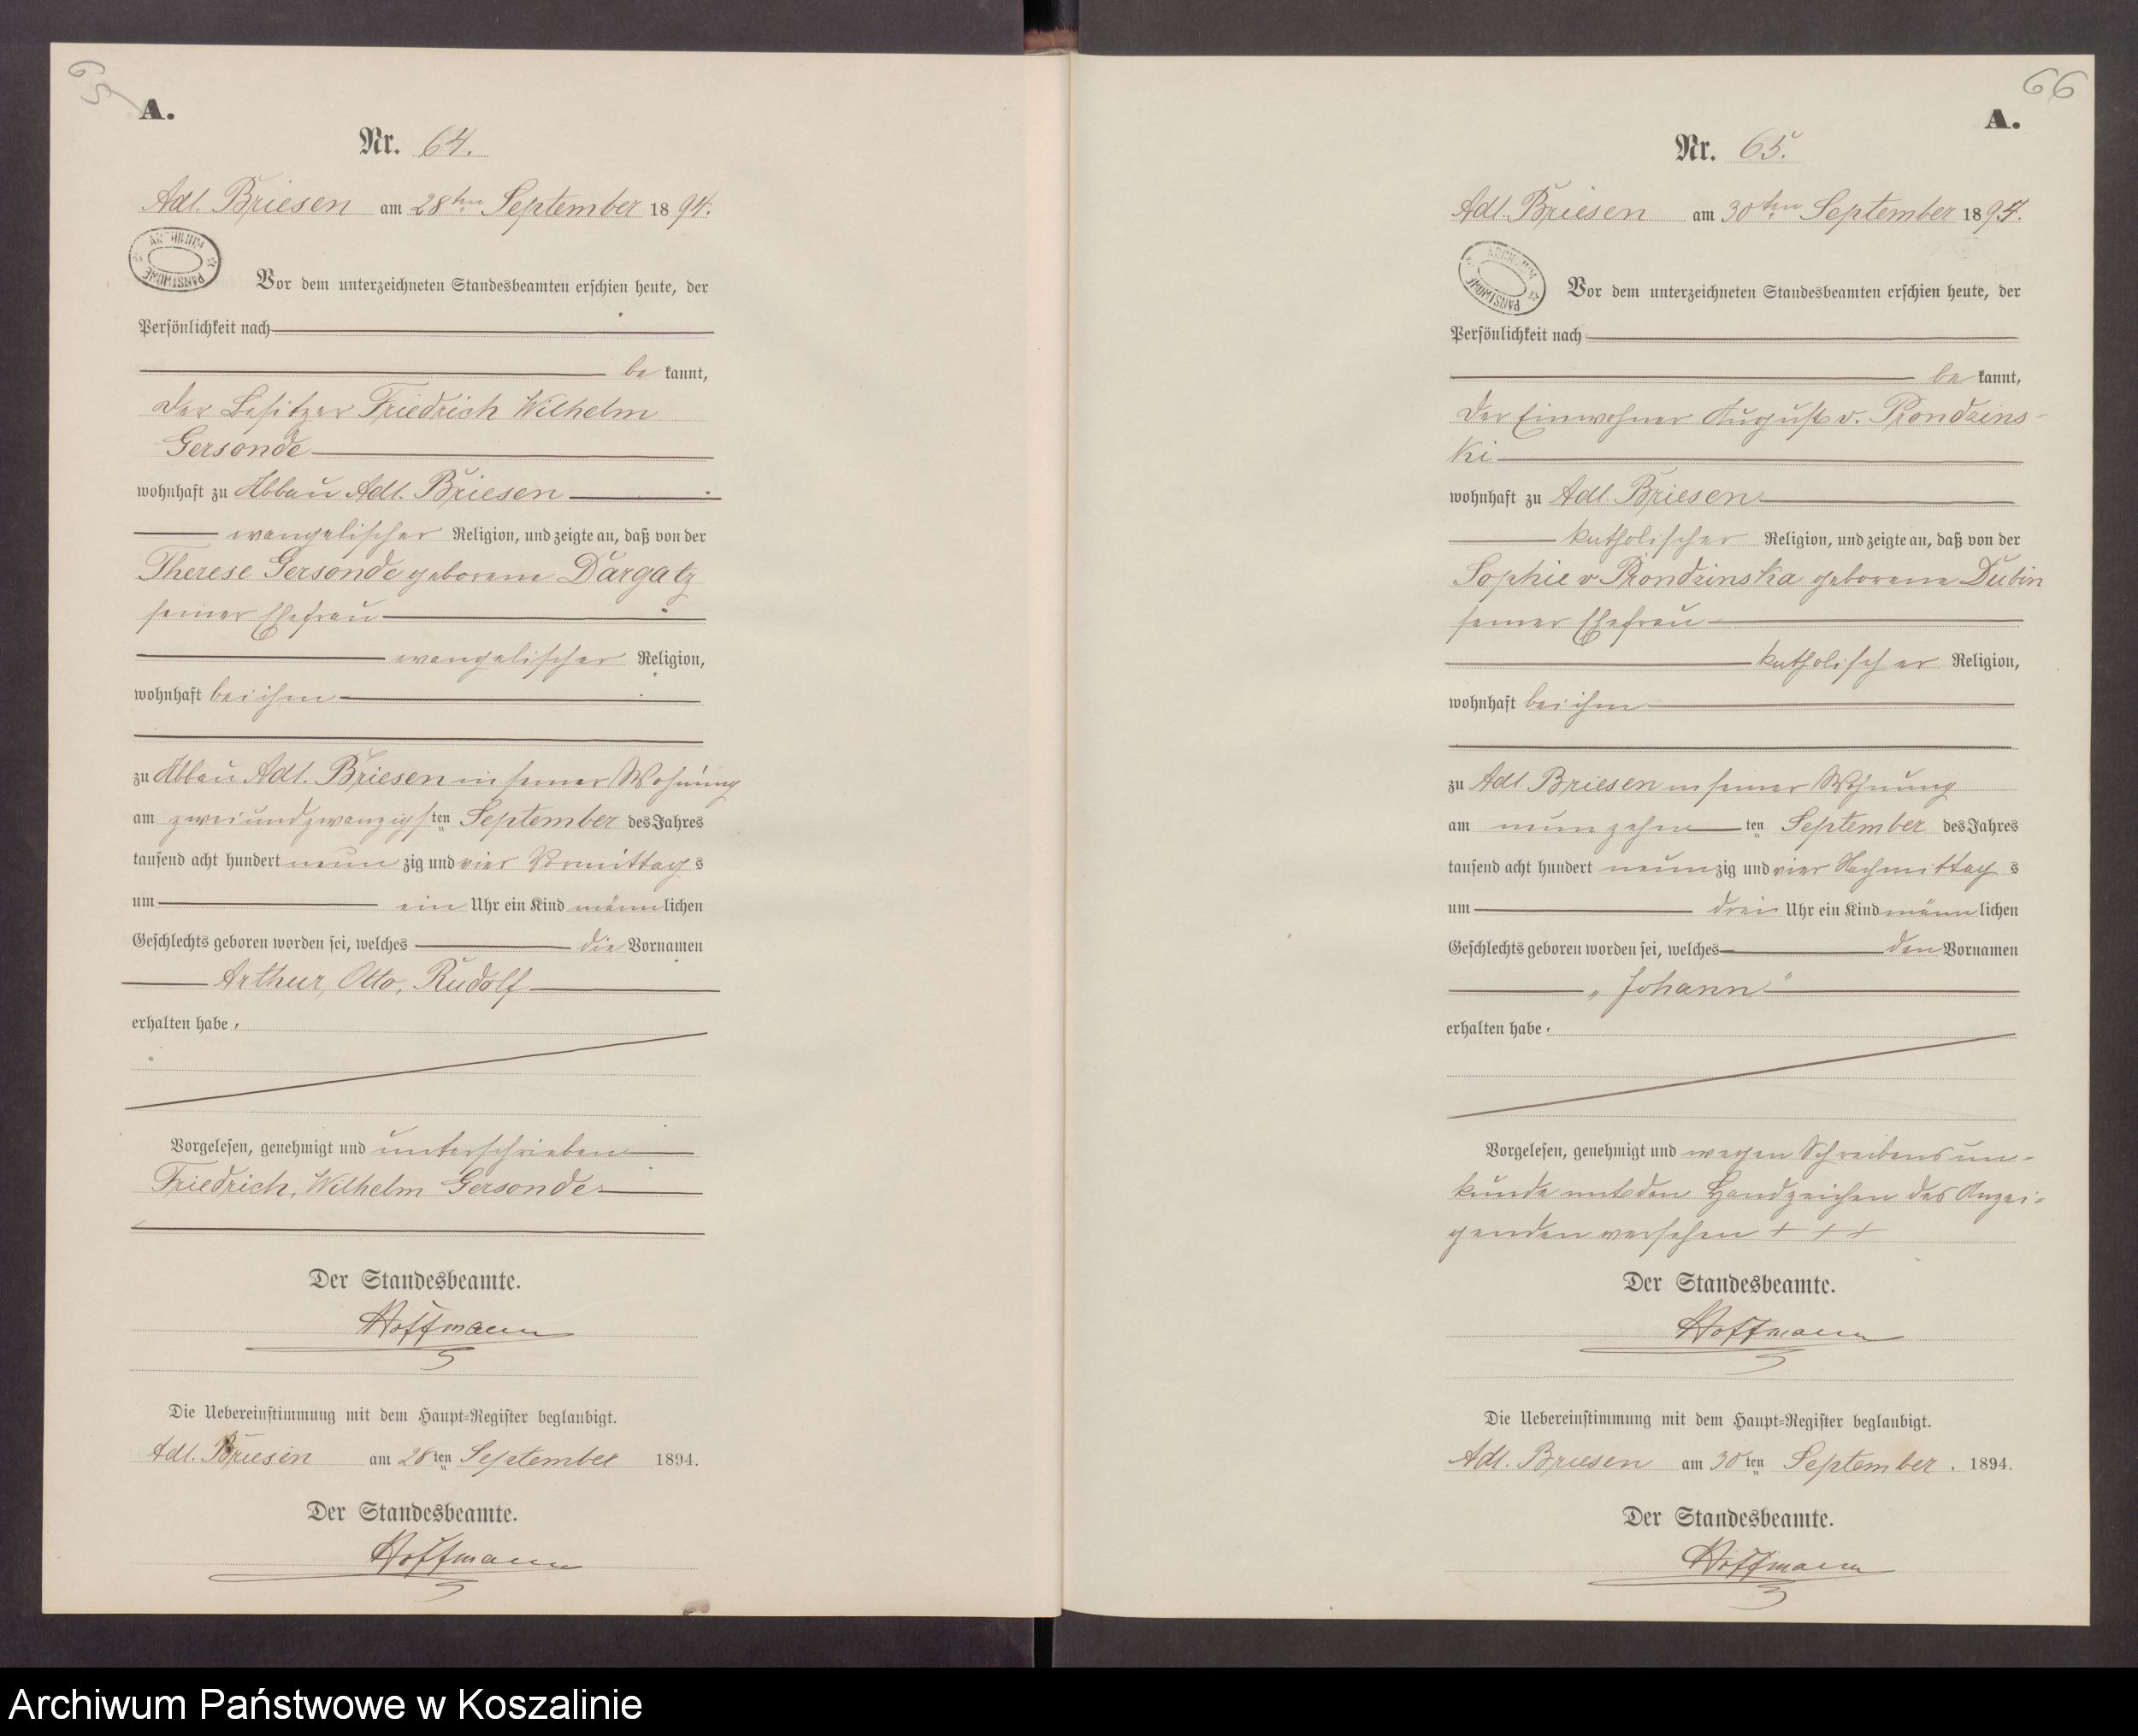 65
A.
Nr. 64.
Adl. Briesen am 28ten September 1894.
ARCHIWUM PAŃSTWOWE
Vor dem unterzeichneten Standesbeamten erschien heute, der
Persönlichkeit nach
be kannt,
der Besitzer Friedrich Wilhelm
Gersonde
wohnhaft zu Abbau Adl. Briesen
evangelischer Religion, und zeigte an, daß von der
Therese Gersonde geborene Dargatz
seiner Ehefrau
evangelischer Religion,
wohnhaft bei ihm
zu Abbau Adl. Briesen in seiner Wohnung
am zweiundzwanzigsten September des Jahres
tausend acht hundert neun zig und vier Vormittag s
um ein Uhr ein Kind männ lichen
Geschlechts geboren worden sei, welches die Vornamen
Arthur, Otto, Rudolf
erhalten habe.
Vorgelesen, genehmigt und unterschrieben
Friedrich, Wilhelm Gersonde
Der Standesbeamte.
Hoffmann
Die Uebereinstimmung mit dem Haupt-Register beglaubigt.
Adl. Briesen am 28ten September 1894.
Der Standesbeamte.
Hoffmann
66
A.
Nr. 65.
Adl. Briesen am 30ten September 1894.
ARCHIWUM PAŃSTWOWE
Vor dem unterzeichneten Standesbeamten erschien heute, der
Persönlichkeit nach
be kannt,
der Einwohner August v. Prondzins-
ki
wohnhaft zu Adl. Briesen
katholischer Religion, und zeigte an, daß von der
Sophie v Prondzinska geborene Dubin
seiner Ehefrau
katholischer Religion,
wohnhaft bei ihm
zu Adl Briesen in seiner Wohnung
am neunzehn ten September des Jahres
tausend acht hundert neun zig und vier Nachmittag s
um drei Uhr ein Kind männ lichen
Geschlechts geboren worden sei, welches den Vornamen
„Johann“
erhalten habe.
Vorgelesen, genehmigt und wegen Schreibensun-
kunde mit den Handzeichen des Anzei-
genden versehen + + +
Der Standesbeamte.
Hoffmann
Die Uebereinstimmung mit dem Haupt-Register beglaubigt.
Adl. Briesen am 30ten September. 1894.
Der Standesbeamte.
Hoffmann
Archiwum Państwowe w Koszalinie